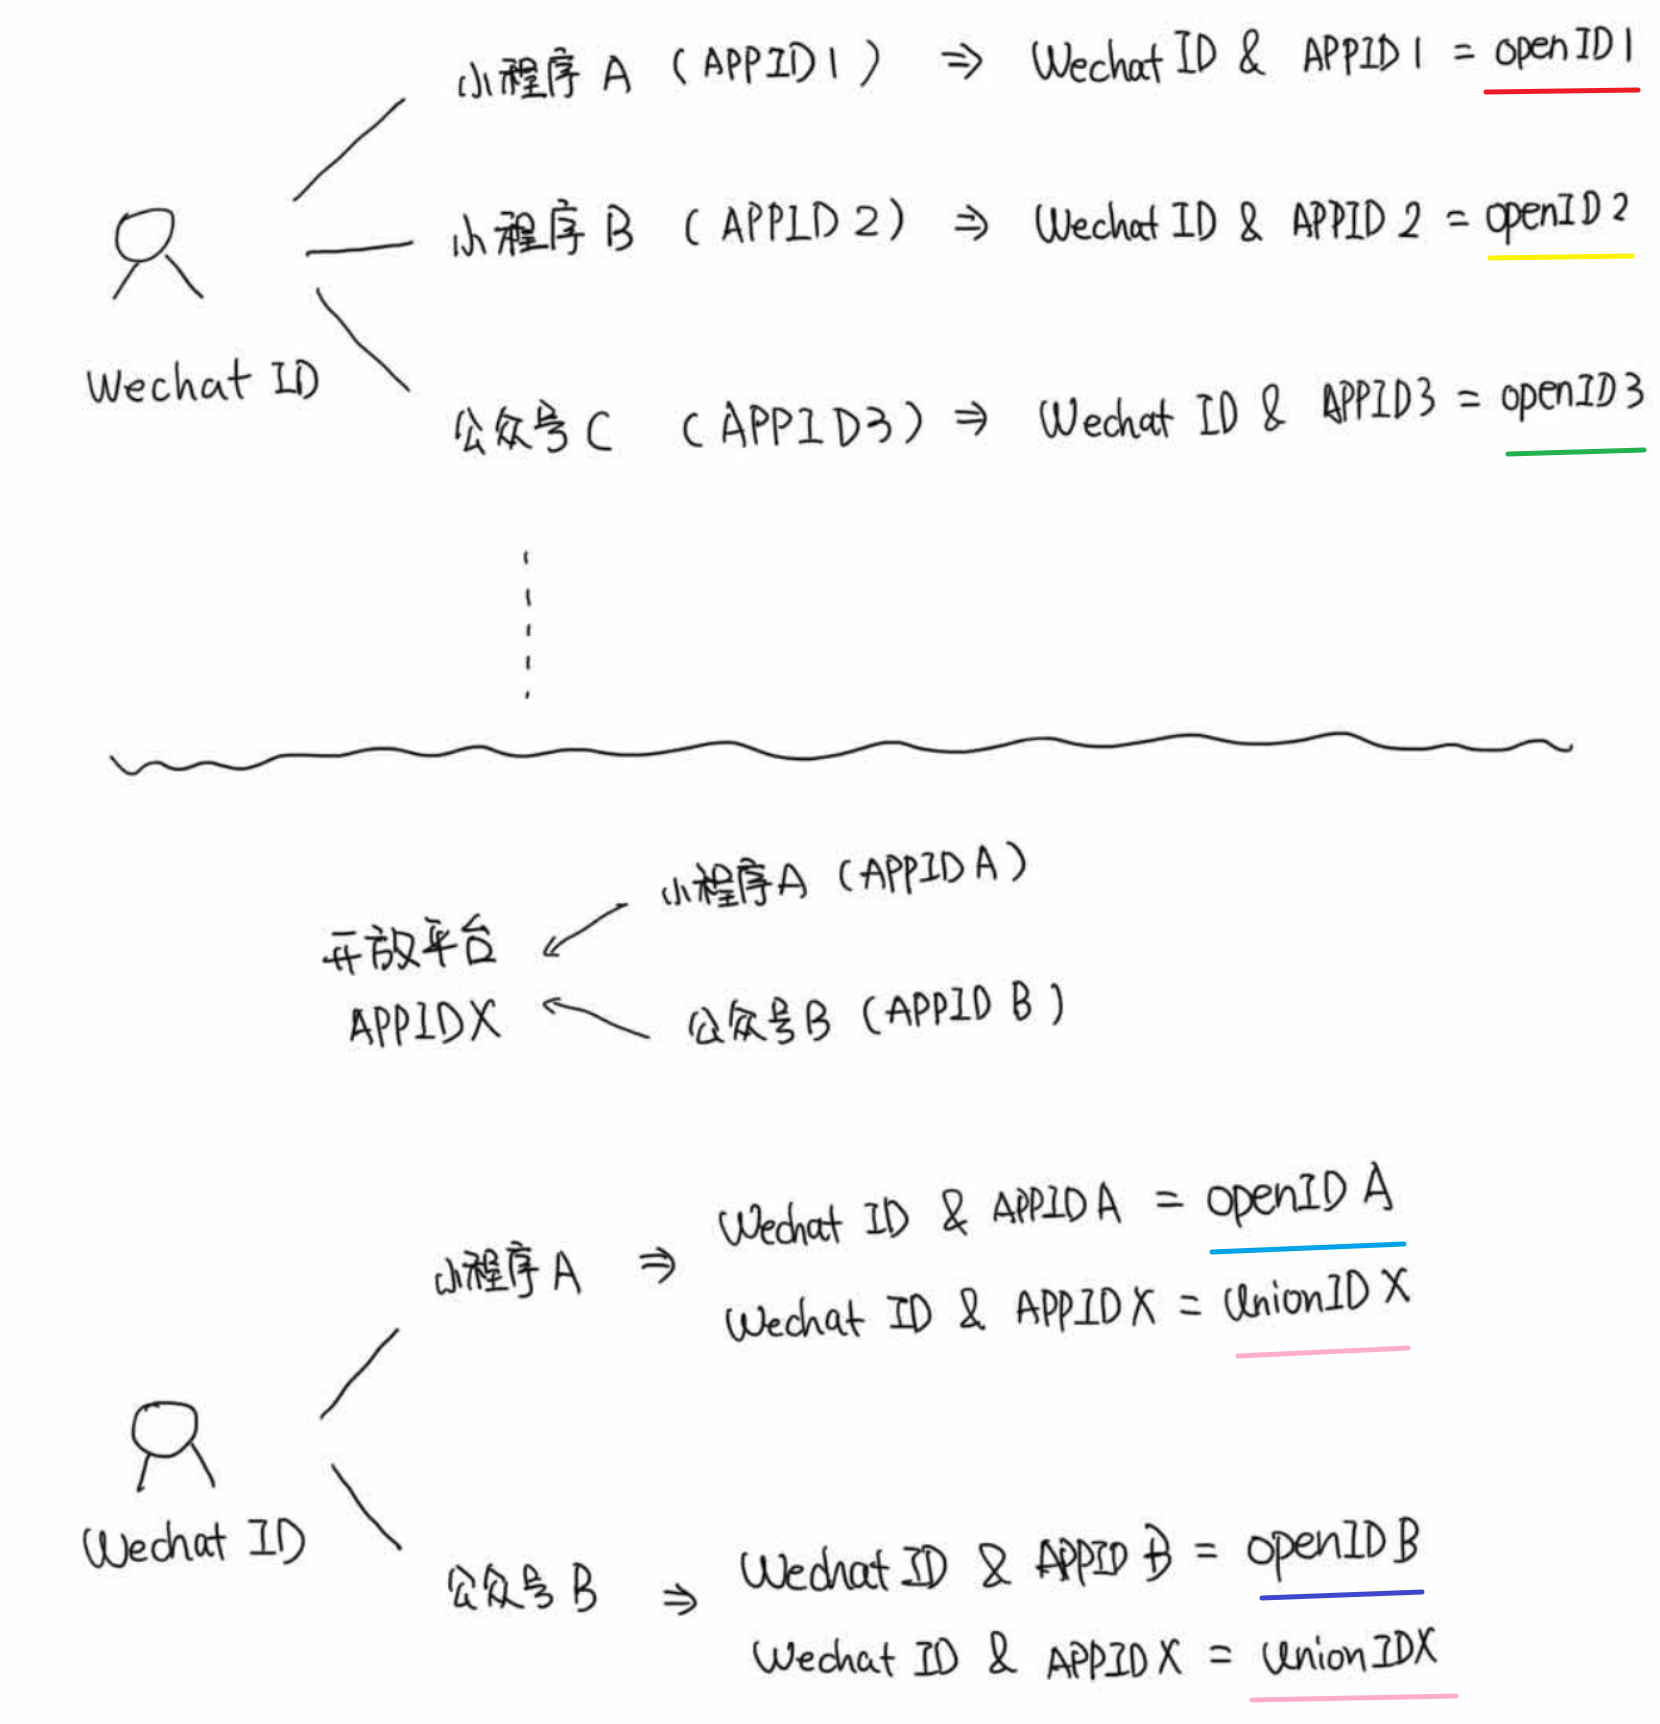 小程序 A (APPID1) ⇒ Wechat ID & APPID1 = openID1
小程序 B (APPID2) ⇒ Wechat ID & APPID2 = openID2
Wechat ID
公众号 C (APPID3) ⇒ Wechat ID & APPID3 = openID3
小程序A (APPID A)
开放平台
APPIDX
公众号B (APPID B)
小程序 A ⇒
Wechat ID & APPIDA = openID A
Wechat ID & APPIDX = UnionID X
Wechat ID
公众号 B ⇒
Wechat ID & APPID B = openID B
Wechat ID & APPIDX = UnionIDX